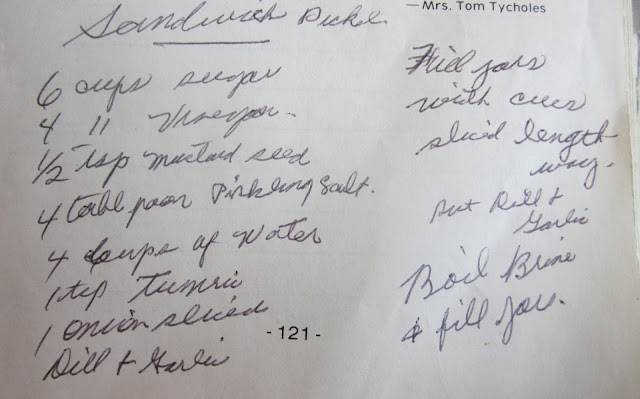 — Mrs. Tom Tycholes
Sandwich Pickle
6 cups sugar
4 " Vinegar
1/2 tsp mustard seed
4 table poon Pickling Salt.
4 cups of Water
1 tsp Tumric
1 onion sliced
Dill + Garlic
Fill jars
with cucs
slic'd length
way.
Put Dill +
Garlic
Boil Brine
& fill jars.
- 121 -